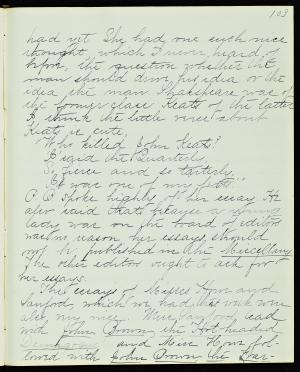 103
had yet. She had one such nice
thought, which I never heard of
before, the question whether the
man should drive his idea or the
idea the man. Shakespeare was of
the former class Keats of the latter
I think the little verse about
Keats is cute,
"Who killed John Keats?
I, said the Quarterly,
So fierce and so tartarly,
It was one of my feats."
C. C. spoke highly of her essay. He
also said that because a young
lady was on the board of editors
was no reason her essays should
not be published in the Miscellany.
The other editors ought to ask for
her essays.
The essays of Misses Hom and
Sanford, which we had this week were
also, my mess. Miss Sanford read
with John Brown, the Hot-headed
and Miss Hom fol-
lowed with John Brown the